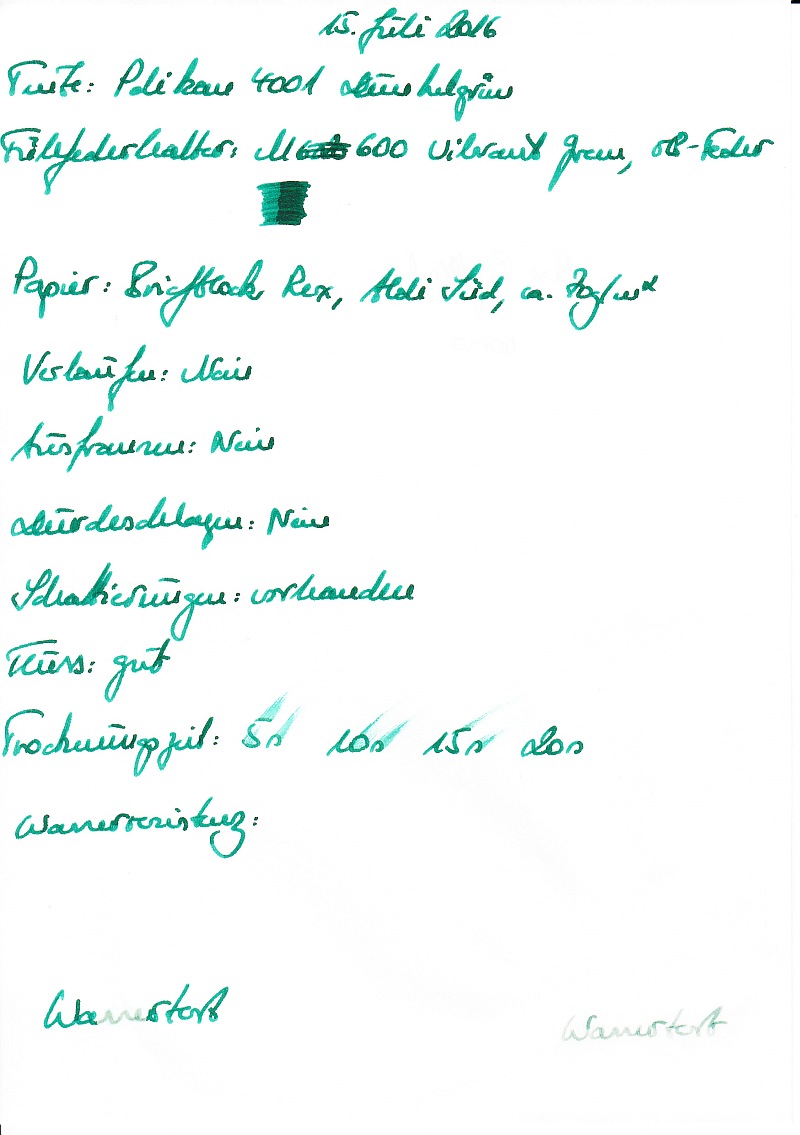 15. Juli 2016
Tinte: Pelikan 4001 Dunkelgrün
Füllfederhalter: M 600 Vibrant Green, OB-Feder
Papier: Briefblock Rex, Aldi Süd, ca. 70g/m²
Verlaufen: Nein
Ausfransen: Nein
Durchschlagen: Nein
Schattierungen: vorhanden
Fluss: gut
Trocknungszeit: 5s 10s 15s 20s
Wasserresistenz:
Wassertest Wassertest